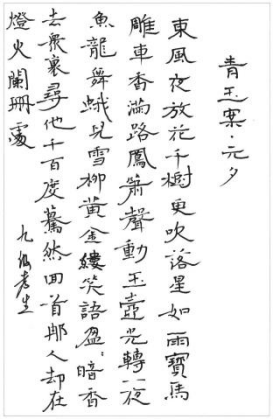 青玉案·元夕
東風夜放花千樹更吹落星如雨寶馬
雕車香滿路鳳簫聲動玉壺光轉一夜
魚龍舞蛾兒雪柳黃金縷笑語盈:暗香
去衆裏尋他千百度驀然回首那人却在
燈火闌珊處